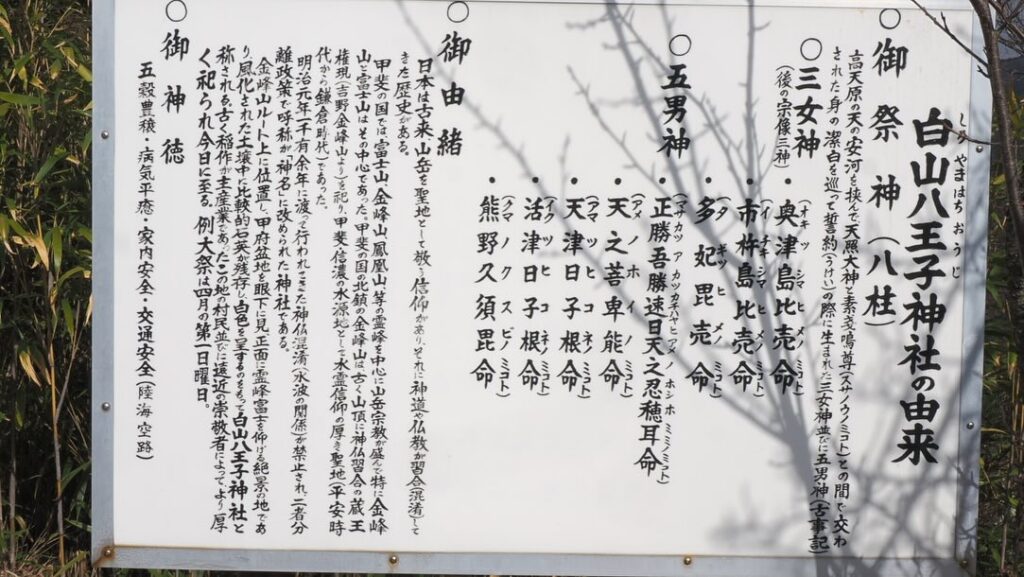 白山八王子神社の由来
しろやまはちおうじ
○御祭神（八柱）
高天原の天の安河を挟んで天照大神と素戔鳴尊（スサノウノミコト）との間で交わ
された身の潔白を巡って誓約（うけい）の際に生まれた三女神並びに五男神（古事記）
○三女神
（後の宗像三神）
・奥津島比売命
（オキツシマヒメノミコト）
・市杵島比売命
（イチキシマヒメノミコト）
・多妃毘売命
（タギツヒメノミコト）
○五男神
・正勝吾勝速日天之忍穂耳命
（マサカツアカツカチハヤヒアメノホシホミミノミコト）
・天之菩卑能命
（アメノホヒノミコト）
・天津日子根命
（アマツヒコネノミコト）
・活津日子根命
（イクツヒコネノミコト）
・熊野久須毘命
（クマノクスビノミコト）
○御由緒
日本は古来、山岳を聖地として敬う信仰があり、それに神道や仏教が習合（混淆）して
きた歴史がある。
甲斐の国では、富士山、金峰山、鳳凰山、等の霊峰を中心に山岳宗教が盛んで特に金峰
山と富士山はその中心であった。甲斐の国の北鎮の金峰山は、古く山頂に神仏習合の蔵王
権現（吉野金峰山より）を祀り、甲斐、信濃の水源地として水霊信仰の厚き聖地（平安時
代から鎌倉時代）であった。
明治元年、一千有余年に渡って行われてきた神仏混淆（水波の関係）が禁止され、二者分
離政策で呼称が「神名」に改められた神社である。
金峰山ルート上に位置し、甲府盆地を眼下に見、正面に霊峰富士を仰げる絶景の地であ
り、風化された土壌中、比較的石英が残存し白色を呈するのをもって白山八王子神社と
称される。古く稲作が主産業であったこの地の村民並びに遠近の崇敬者によってより厚
く祀られ今日に至る。例大祭は四月の第一日曜日。
○御神徳
五穀豊穣・病気平癒・家内安全・交通安全（陸海空路）